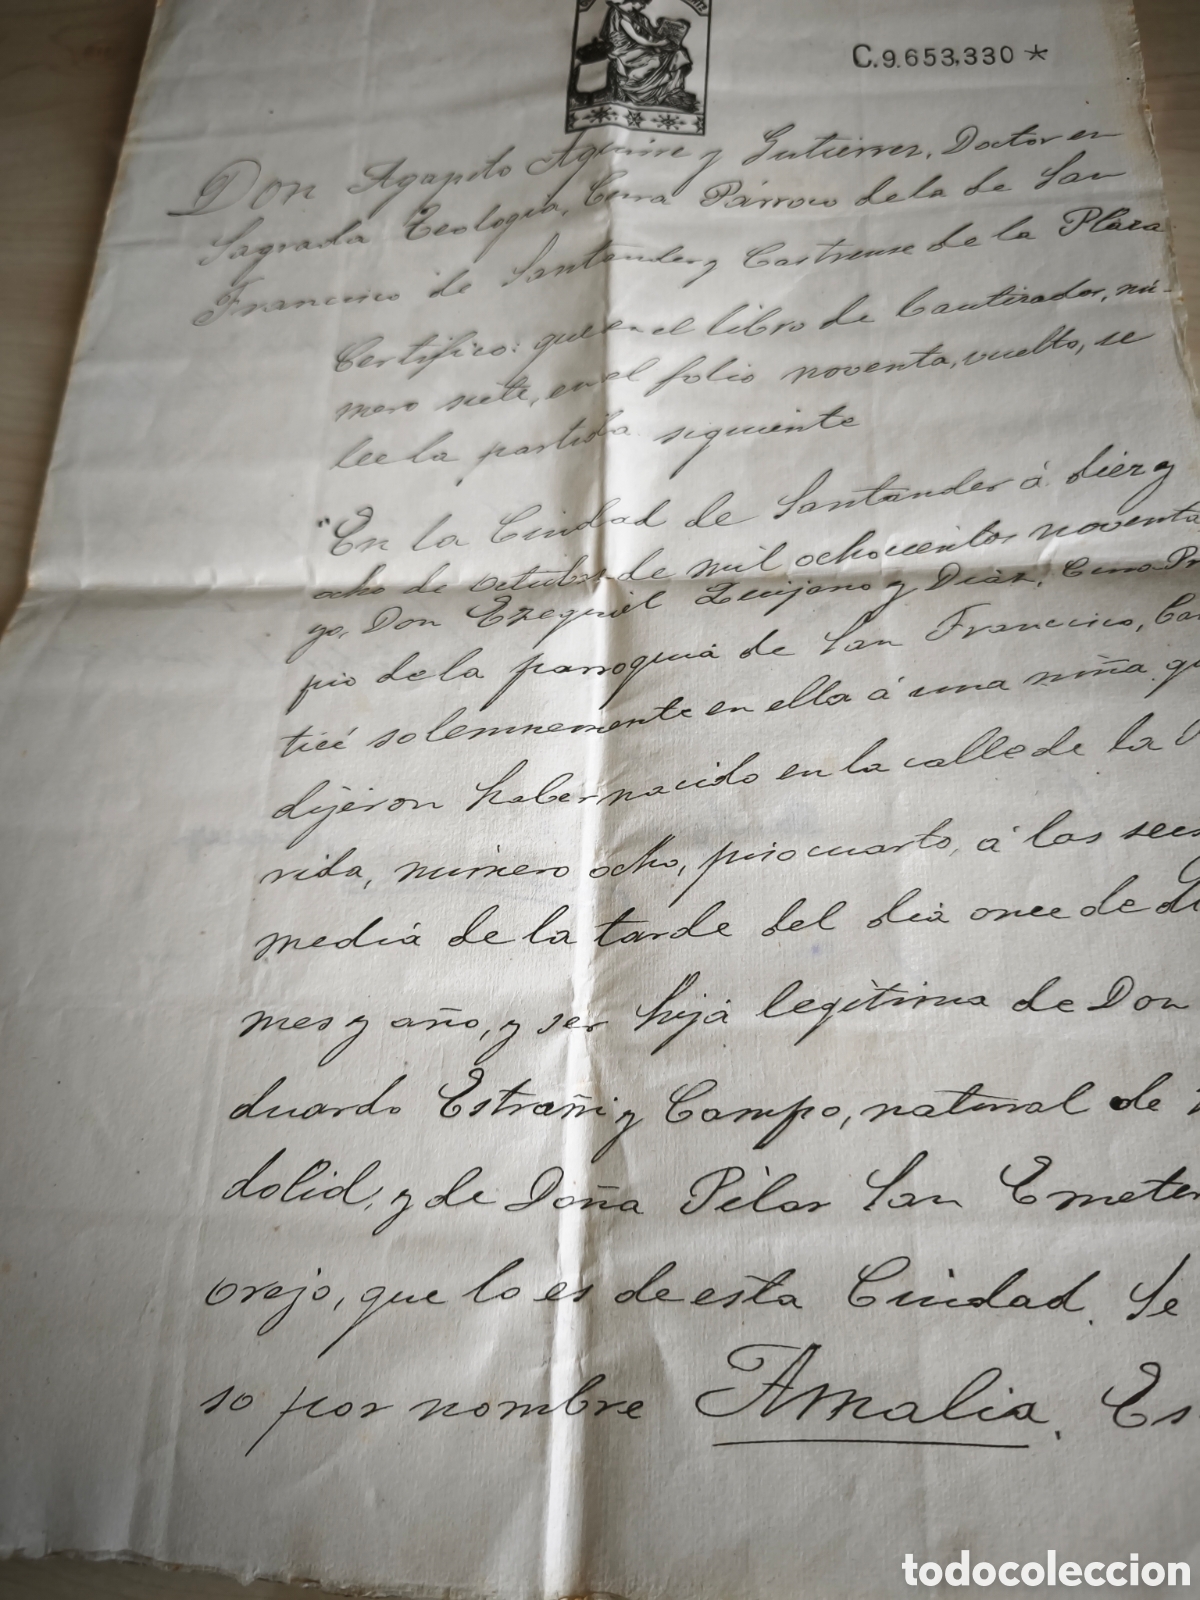 C.9.653,330 *
Don Agapito Aguirre y Gutierrez, Doctor en
Sagrada Teologia, Cura Párroco de la de San
Francisco de Santander y Castrense de la Plaza
Certifico: que en el libro de Bautizados, nú-
mero siete, en el folio noventa, vuelto, se
lee la partida siguiente
"En la Ciudad de Santander á diez y
ocho de octubre de mil ochocientos noventa
yo, Don Ezequiel Quijano y Diaz, Cura Pro
pio de la parroquia de San Francisco, bau
ticé solemnemente en ella á una niña que
dijeron haber nacido en la calle de la
rida, número ocho, piso cuarto, á las seis
media de la tarde del dia once de
mes y año, y ser hija legítima de Don
duardo Estrañi y Campo, natural de
dolid, y de Doña Pilar San Emeter
orejo, que lo es de esta Ciudad. Se
so por nombre Amalia. Es
todocoleccion